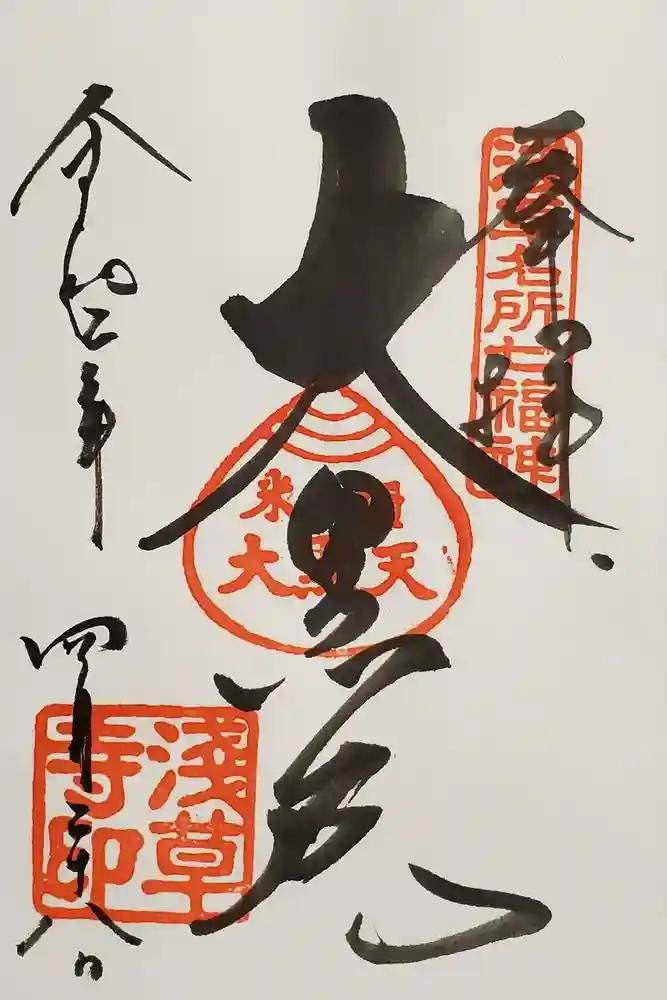 奉拝
浅草名所七福神
大黒天
大黒天
令和
四月二十八日
淺草
寺印